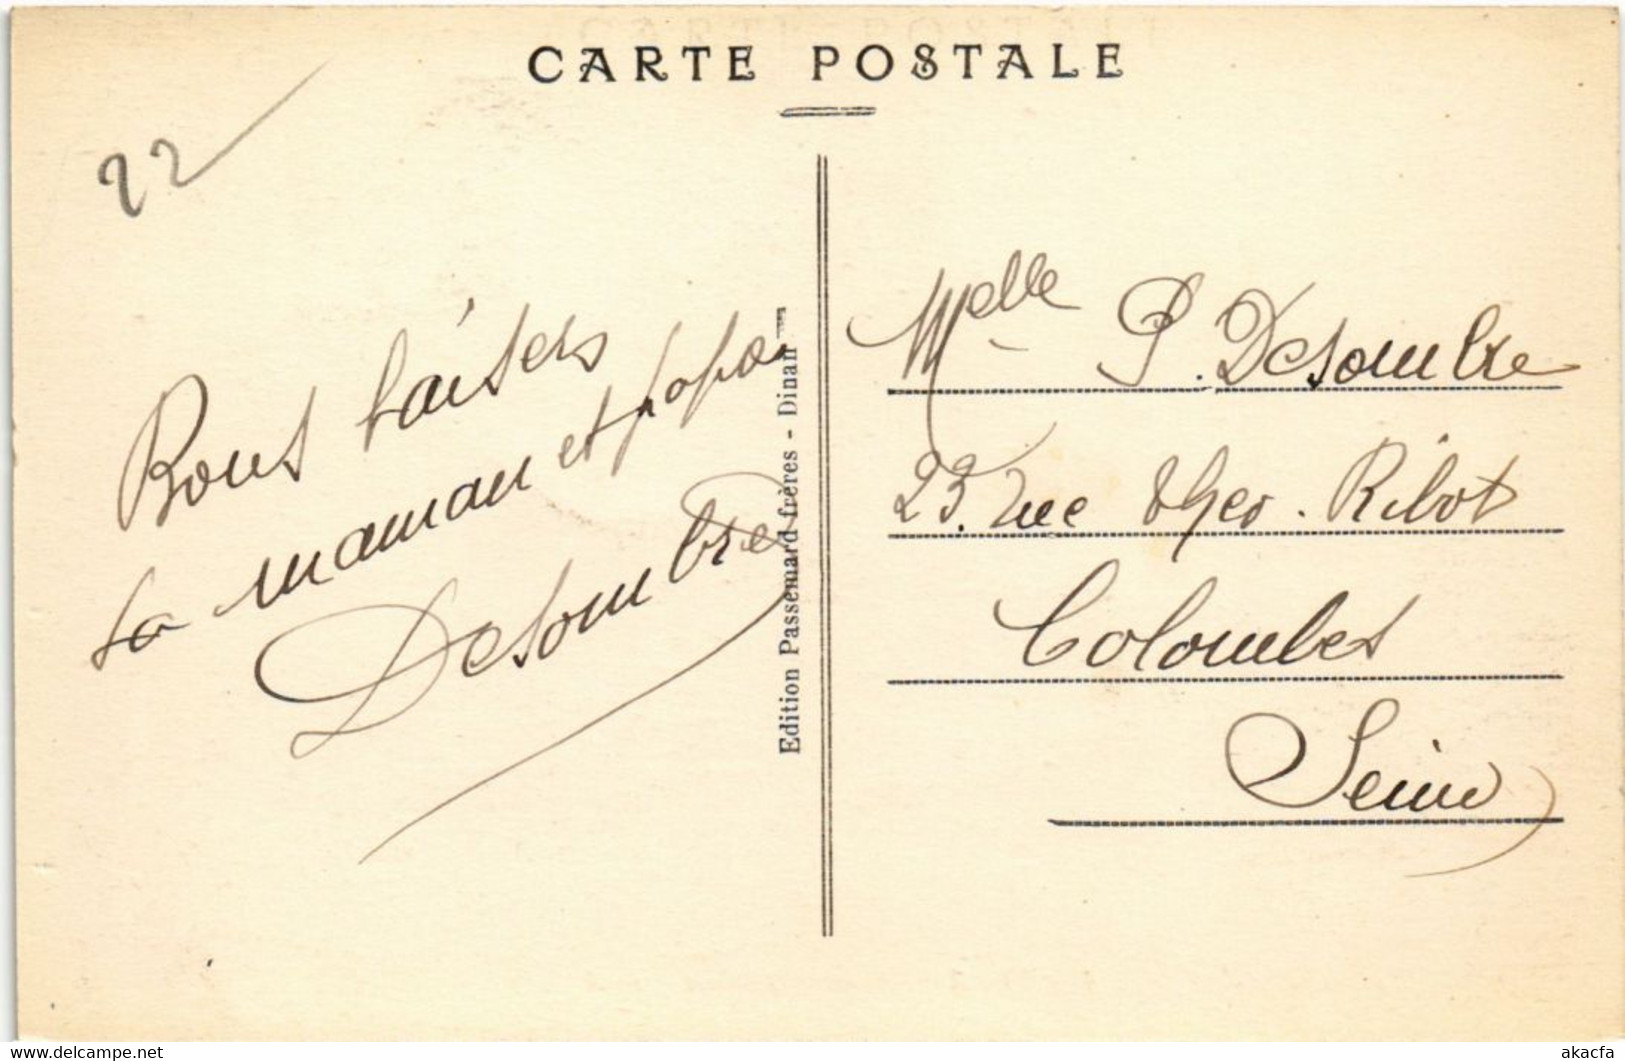 CARTE POSTALE
22
Bons baisers
ta maman et papa
Desombre
Edition Passemard frères - Dinan
Melle P. Desombre
23. rue Theo. Ribot
Colombes
Seine
www.delcampe.net
akacfa